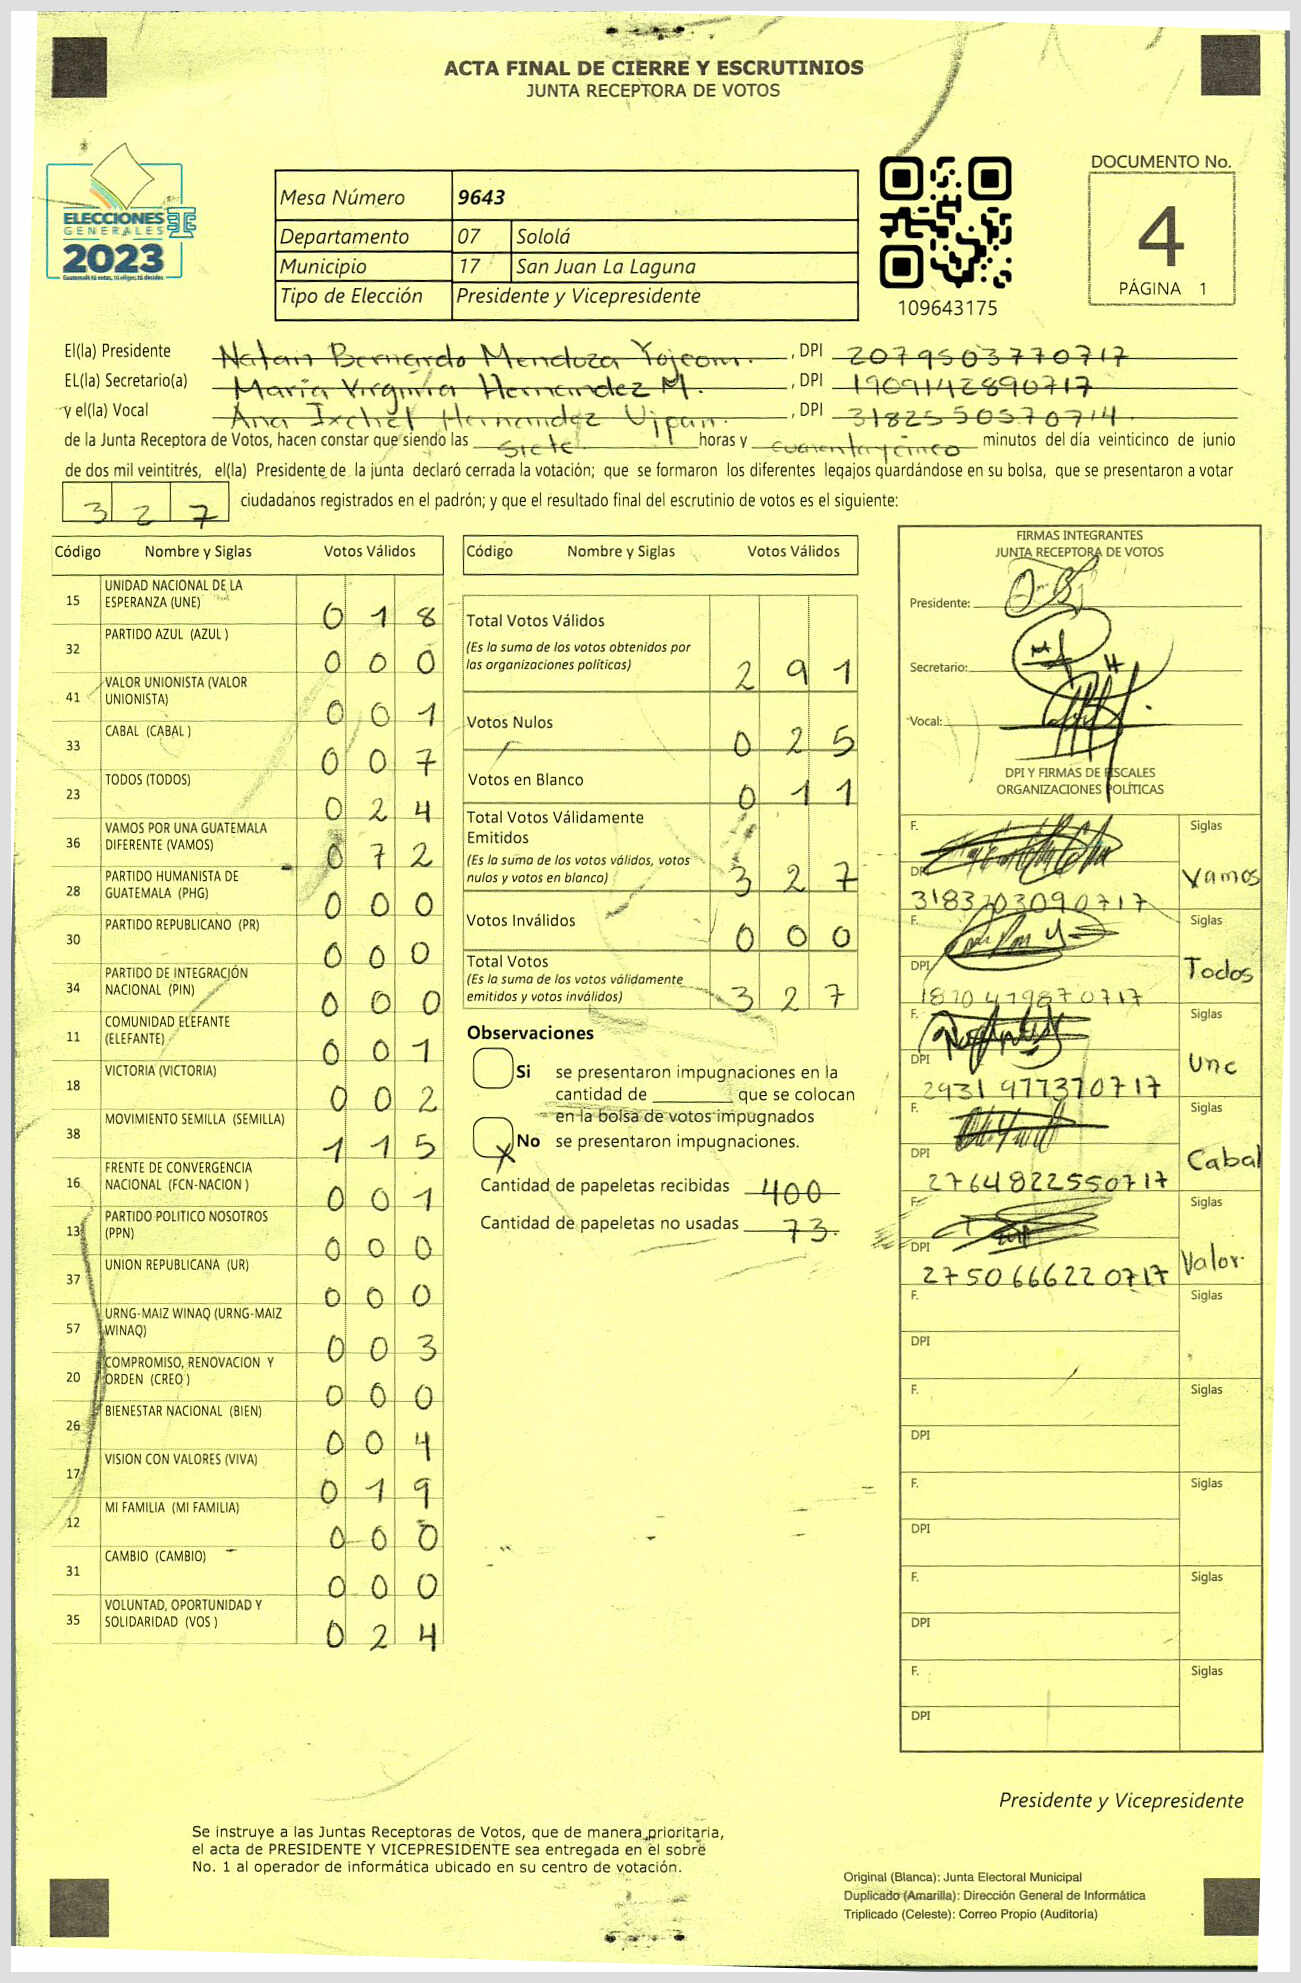 ACTA FINAL DE CIERRE Y ESCRUTINIOS
JUNTA RECEPTORA DE VOTOS
ELECCIONES
GENERALES
2023
Guatemala: tú votas, tú eliges, tú decides
Mesa Número 9643
Departamento 07 Sololá
Municipio 17 San Juan La Laguna
Tipo de Elección Presidente y Vicepresidente
109643175
DOCUMENTO No.
4
PÁGINA 1
El(la) Presidente Natan Bernardo Mendoza Yojcom. , DPI 2079503770717
EL(la) Secretario(a) María Virginia Hernández M. , DPI 1909142890717
y el(la) Vocal Ana Ixchel Hernandez Ujpan. , DPI 3182550570714
de la Junta Receptora de Votos, hacen constar que siendo las siete horas y cuarenta y cinco minutos del día veinticinco de junio
de dos mil veintitrés, el(la) Presidente de la junta declaró cerrada la votación; que se formaron los diferentes legajos guardándose en su bolsa, que se presentaron a votar
3 2 7 ciudadanos registrados en el padrón; y que el resultado final del escrutinio de votos es el siguiente:
Código Nombre y Siglas Votos Válidos
15 UNIDAD NACIONAL DE LA ESPERANZA (UNE) 0 1 8
32 PARTIDO AZUL (AZUL ) 0 0 0
41 VALOR UNIONISTA (VALOR UNIONISTA) 0 0 1
33 CABAL (CABAL ) 0 0 7
23 TODOS (TODOS) 0 2 4
36 VAMOS POR UNA GUATEMALA DIFERENTE (VAMOS) 0 7 2
28 PARTIDO HUMANISTA DE GUATEMALA (PHG) 0 0 0
30 PARTIDO REPUBLICANO (PR) 0 0 0
34 PARTIDO DE INTEGRACIÓN NACIONAL (PIN) 0 0 0
11 COMUNIDAD ELEFANTE (ELEFANTE) 0 0 1
18 VICTORIA (VICTORIA) 0 0 2
38 MOVIMIENTO SEMILLA (SEMILLA) 1 1 5
16 FRENTE DE CONVERGENCIA NACIONAL (FCN-NACION ) 0 0 1
13 PARTIDO POLITICO NOSOTROS (PPN) 0 0 0
37 UNION REPUBLICANA (UR) 0 0 0
57 URNG-MAIZ WINAQ (URNG-MAIZ WINAQ) 0 0 3
20 COMPROMISO, RENOVACION Y ORDEN (CREO ) 0 0 0
26 BIENESTAR NACIONAL (BIEN) 0 0 4
17 VISION CON VALORES (VIVA) 0 1 9
12 MI FAMILIA (MI FAMILIA) 0 0 0
31 CAMBIO (CAMBIO) 0 0 0
35 VOLUNTAD, OPORTUNIDAD Y SOLIDARIDAD (VOS ) 0 2 4
Código Nombre y Siglas Votos Válidos
Total Votos Válidos
(Es la suma de los votos obtenidos por
las organizaciones políticas) 2 9 1
Votos Nulos 0 2 5
Votos en Blanco 0 1 1
Total Votos Válidamente
Emitidos
(Es la suma de los votos válidos, votos
nulos y votos en blanco) 3 2 7
Votos Inválidos 0 0 0
Total Votos
(Es la suma de los votos válidamente
emitidos y votos inválidos) 3 2 7
Observaciones
Si se presentaron impugnaciones en la
cantidad de ________ que se colocan
en la bolsa de votos impugnados
X No se presentaron impugnaciones.
Cantidad de papeletas recibidas 400
Cantidad de papeletas no usadas 73.
FIRMAS INTEGRANTES
JUNTA RECEPTORA DE VOTOS
Presidente:
Secretario:
Vocal:
DPI Y FIRMAS DE FISCALES
ORGANIZACIONES POLÍTICAS
F. Siglas
DPI 3183203090717 Vamos
F. Siglas
DPI 1870479870717 Todos
F. Siglas
DPI 2931977370717 Une
F. Siglas
DPI 2764822550717 Cabal
F. Siglas
DPI 2750666220717 Valor.
F. Siglas
DPI
F. Siglas
DPI
F. Siglas
DPI
F. Siglas
DPI
F. Siglas
DPI
Presidente y Vicepresidente
Se instruye a las Juntas Receptoras de Votos, que de manera prioritaria,
el acta de PRESIDENTE Y VICEPRESIDENTE sea entregada en el sobre
No. 1 al operador de informática ubicado en su centro de votación.
Original (Blanca): Junta Electoral Municipal
Duplicado (Amarilla): Dirección General de Informática
Triplicado (Celeste): Correo Propio (Auditoría)